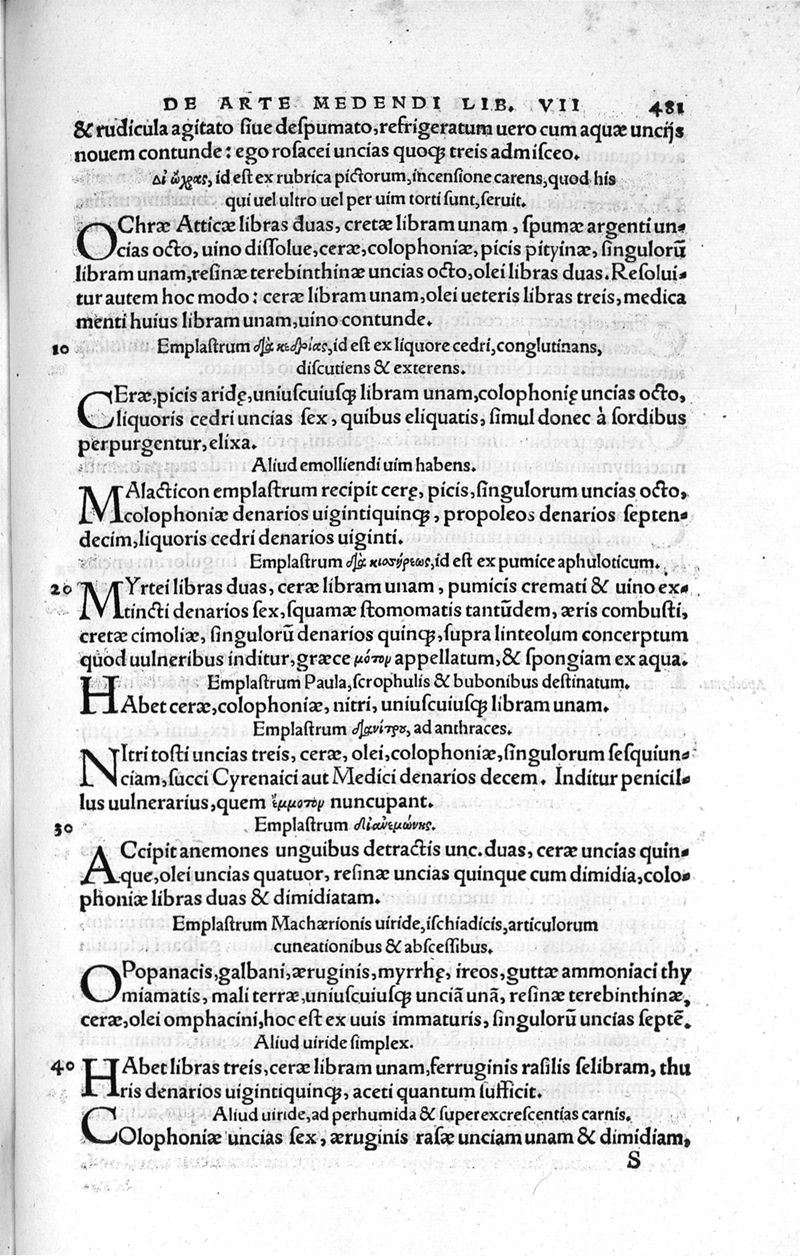 DE ARTE MEDENDI LIB. VII 481
& rudicula agitato ſiue deſpumato, refrigeratum uero cum aquæ uncijs
nouem contunde: ego roſacei uncias quoq; treis admiſceo.
Δι᾽ ὤχρας, id eſt ex rubrica pictorum, incenſione carens, quod his
qui uel ultro uel per uim torti ſunt, ſeruit.
OChræ Atticæ libras duas, cretæ libram unam, ſpumæ argenti un-
cias octo, uino diſſolue, ceræ, colophoniæ, picis pityinæ, ſingulorũ
libram unam, reſinæ terebinthinæ uncias octo, olei libras duas. Reſolui-
tur autem hoc modo: ceræ libram unam, olei ueteris libras treis, medica
menti huius libram unam, uino contunde.
10 Emplaſtrum διὰ κεδρίας, id eſt ex liquore cedri, conglutinans,
diſcutiens & exterens.
CEræ, picis aridę, uniuſcuiuſq; libram unam, colophonię uncias octo,
liquoris cedri uncias ſex, quibus eliquatis, ſimul donec à ſordibus
perpurgentur, elixa.
Aliud emolliendi uim habens.
MAlacticon emplaſtrum recipit cerę, picis, ſingulorum uncias octo,
colophoniæ denarios uigintiquinq;, propoleos denarios ſepten-
decim, liquoris cedri denarios uiginti.
Emplaſtrum διὰ κισσήρεως, id eſt ex pumice aphuloticum.
20 MYrtei libras duas, ceræ libram unam, pumicis cremati & uino ex-
tincti denarios ſex, ſquamæ ſtomomatis tantũdem, æris combuſti,
cretæ cimoliæ, ſingulorũ denarios quinq;, ſupra linteolum concerptum
quod uulneribus inditur, græce μότον appellatum, & ſpongiam ex aqua.
Emplaſtrum Paula, ſcrophulis & bubonibus deſtinatum.
HAbet ceræ, colophoniæ, nitri, uniuſcuiuſq; libram unam.
Emplaſtrum διὰ νίτρου, ad anthraces.
NItri toſti uncias treis, ceræ, olei, colophoniæ, ſingulorum ſeſquiun-
ciam, ſucci Cyrenaici aut Medici denarios decem. Inditur penicil-
lus uulnerarius, quem ἔμμοτον nuncupant.
30 Emplaſtrum δι᾽ ἀνεμώνης.
ACcipit anemones unguibus detractis unc. duas, ceræ uncias quin-
que, olei uncias quatuor, reſinæ uncias quinque cum dimidia, colo-
phoniæ libras duas & dimidiatam.
Emplaſtrum Machærionis uiride, iſchiadicis, articulorum
cuneationibus & abſceſſibus.
OPopanacis, galbani, æruginis, myrrhę, ireos, guttæ ammoniaci thy
miamatis, mali terræ, uniuſcuiuſq; unciã unã, reſinæ terebinthinæ,
ceræ, olei omphacini, hoc eſt ex uuis immaturis, ſingulorũ uncias ſeptẽ.
Aliud uiride ſimplex.
40 HAbet libras treis, ceræ libram unam, ferruginis raſilis ſelibram, thu
ris denarios uigintiquinq;, aceti quantum ſufficit.
Aliud uiride, ad perhumida & ſuperexcreſcentias carnis.
COlophoniæ uncias ſex, æruginis raſæ unciam unam & dimidiam,
S